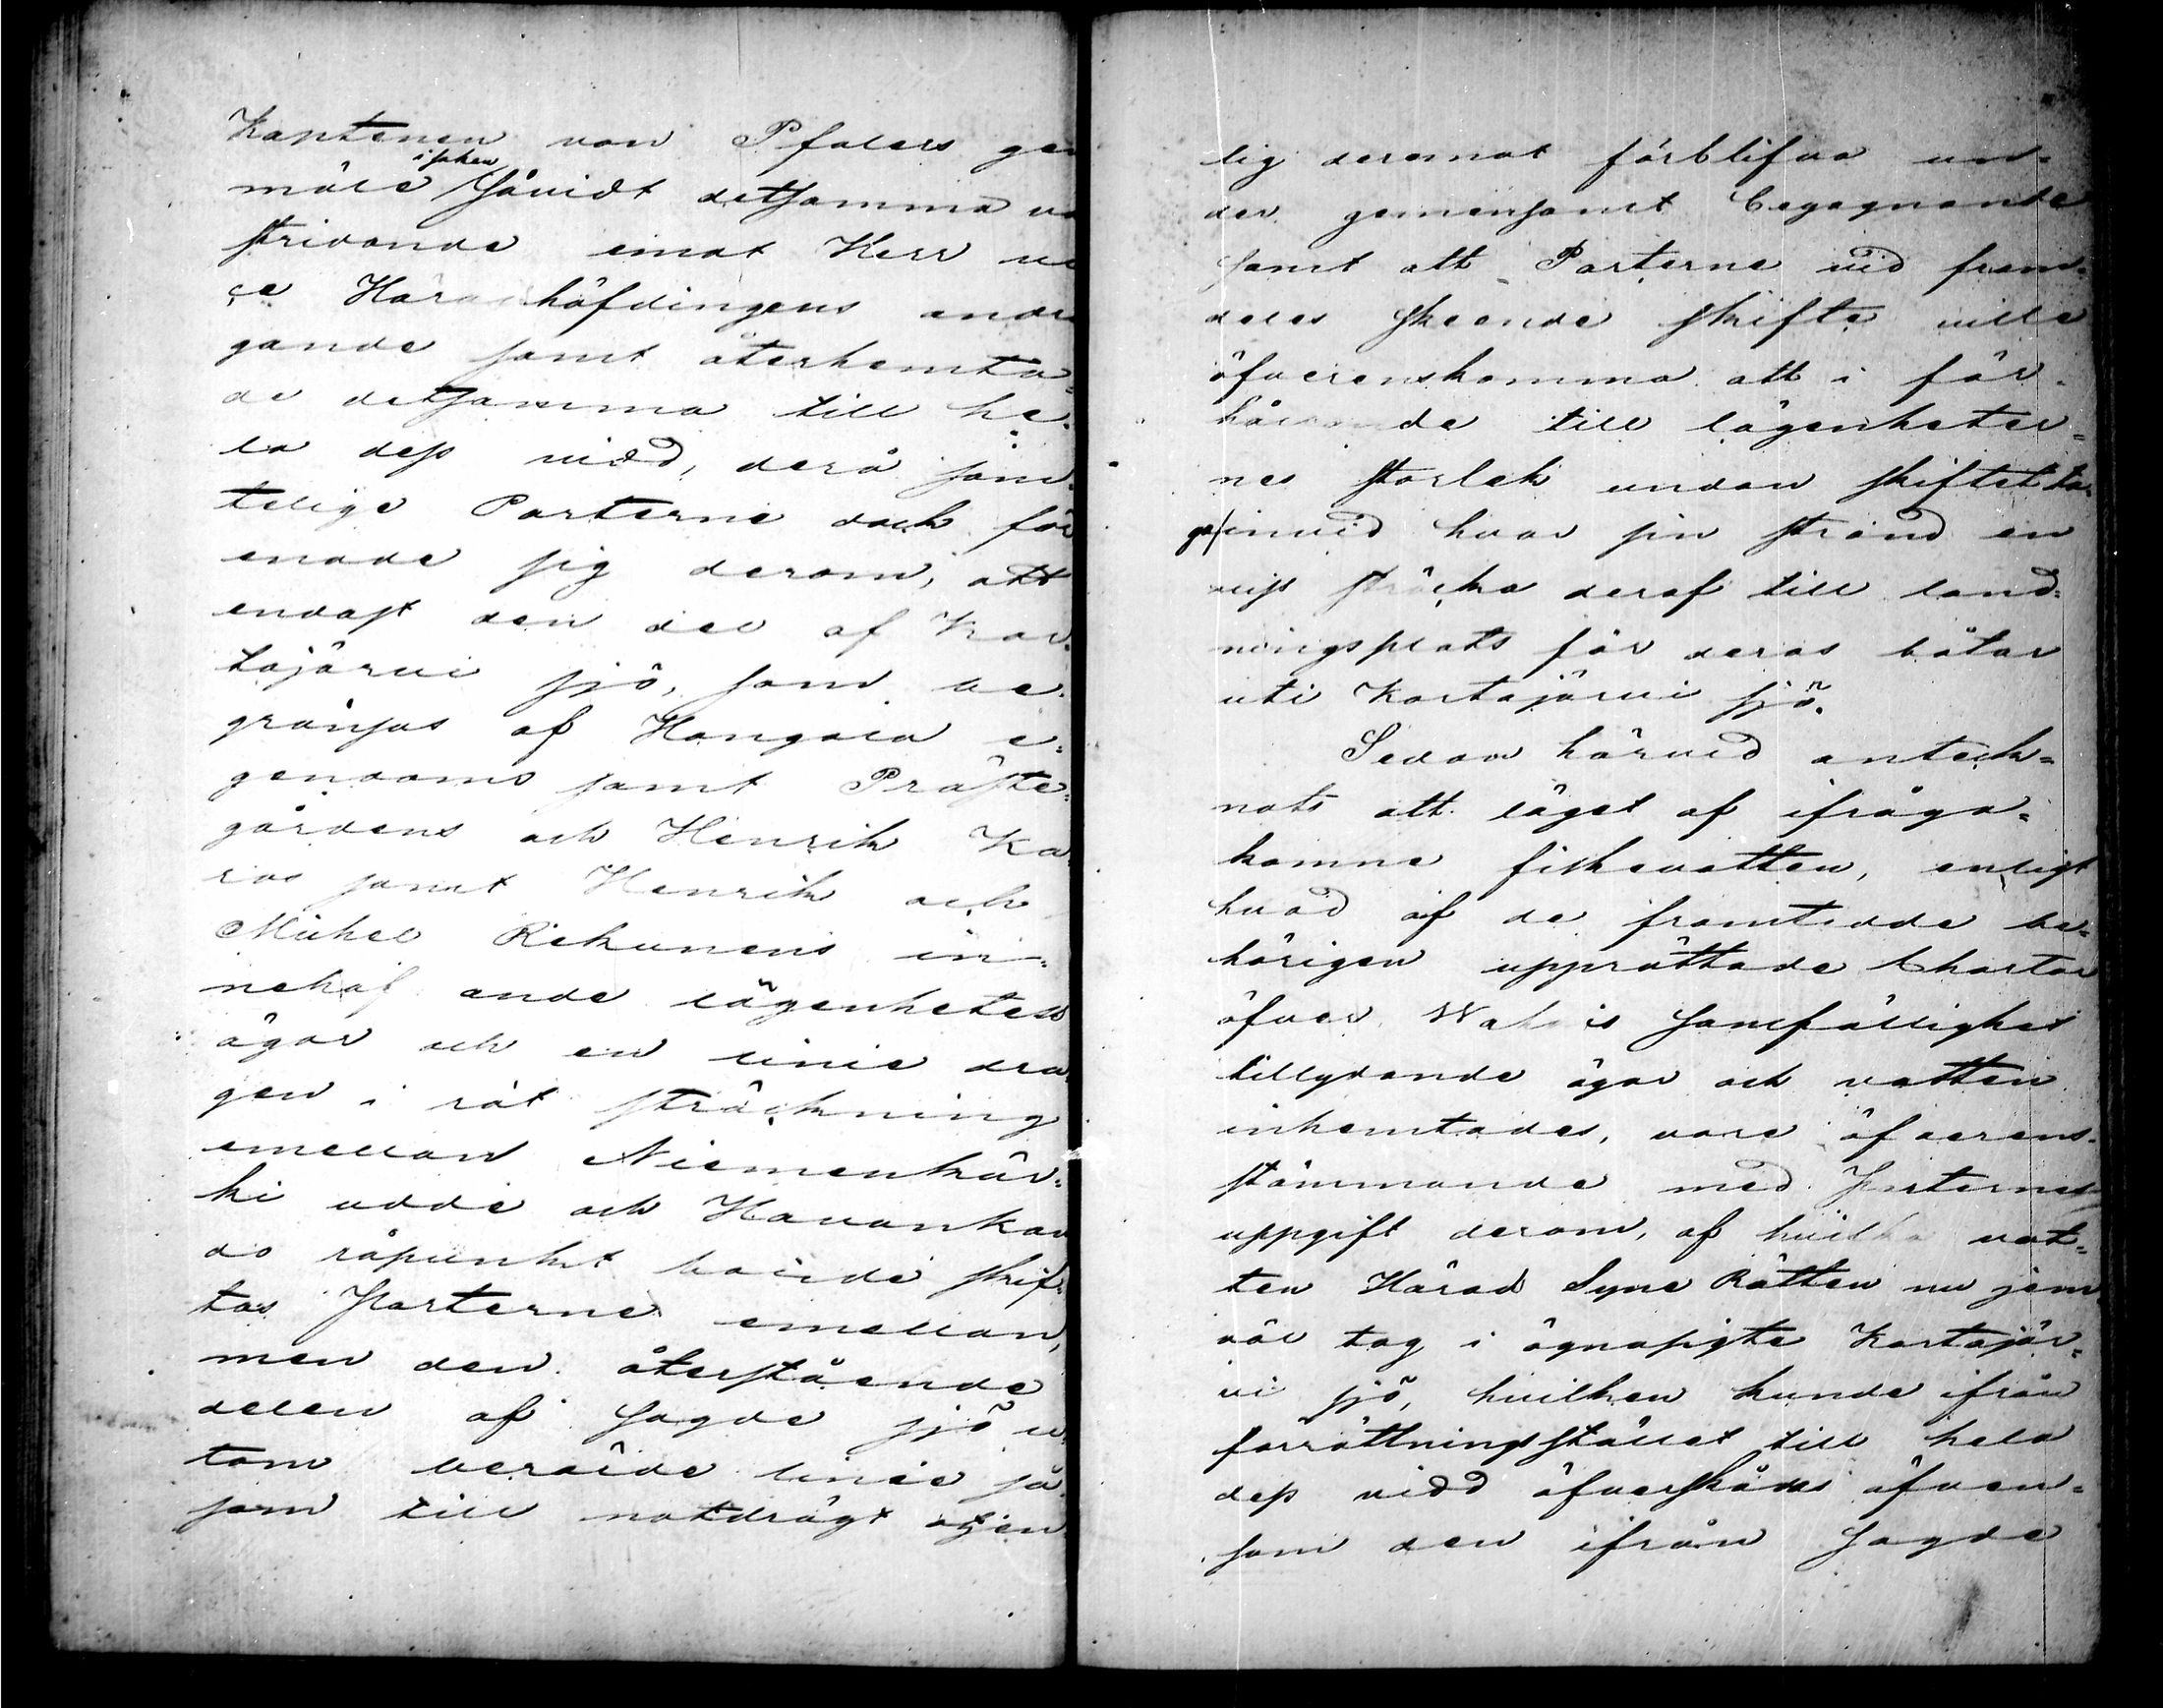 Kaptenen von Pfalers ge
mäle isken såvidt detsamma va
stridande emot Herr vi
ce Häradshöfdingens andra
gande samt återhemta=
de detsamma till he=
la dess vidd, derå sam=
telige Parterne dock för
enade sig derom, att
endast den del af Kar=
tajärvi sjö, som be=
gränsas af Hangala e=
gendoms samt Präste=
gårdens och Henrik Ka
ros samt Henrik och
Mickel Rekunens in=
nehafande lägenheters
ägor och en linie dra
gen i rät sträckning
emellan Niemenkär=
ki udde och Havankan
do råpunkt borde skif=
tas Parterne emellan,
men den återstående
delen af sagde sjö u=
tom berörde linie så=
som till notdrägt otjen
lig deremot förblifva un=
der gemensamt begagnande
samt att Parterne vid fram=
deles skeende skifte ville
öfverenskomma att i för=
hållande till lägenheter=
nes storlek undan skiftet ta=
ga invid hvar sin strand en
viss sträcka deraf till land=
ningsplats för deras båtar
uti Kartajärvi sjö.
Sedan härvid anteck=
nats att läget af ifråga=
komne fiskevatten, enligt
hvad af de framtedde be=
hörigen upprättade Chartor
öfver samfällighet
tillydande ägor och vatten
inhemtades, vore öfverens=
stämmande med Parternes
uppgift derom, af hvilka vat=
ten Härad Syne Rätten nu jem
väl tog i ögnasigte Kartajär=
vi sjö, hvilken kunde ifrån
förrättningsstället till hela
dess vidd öfverskådas äfven=
som den ifrån sagde